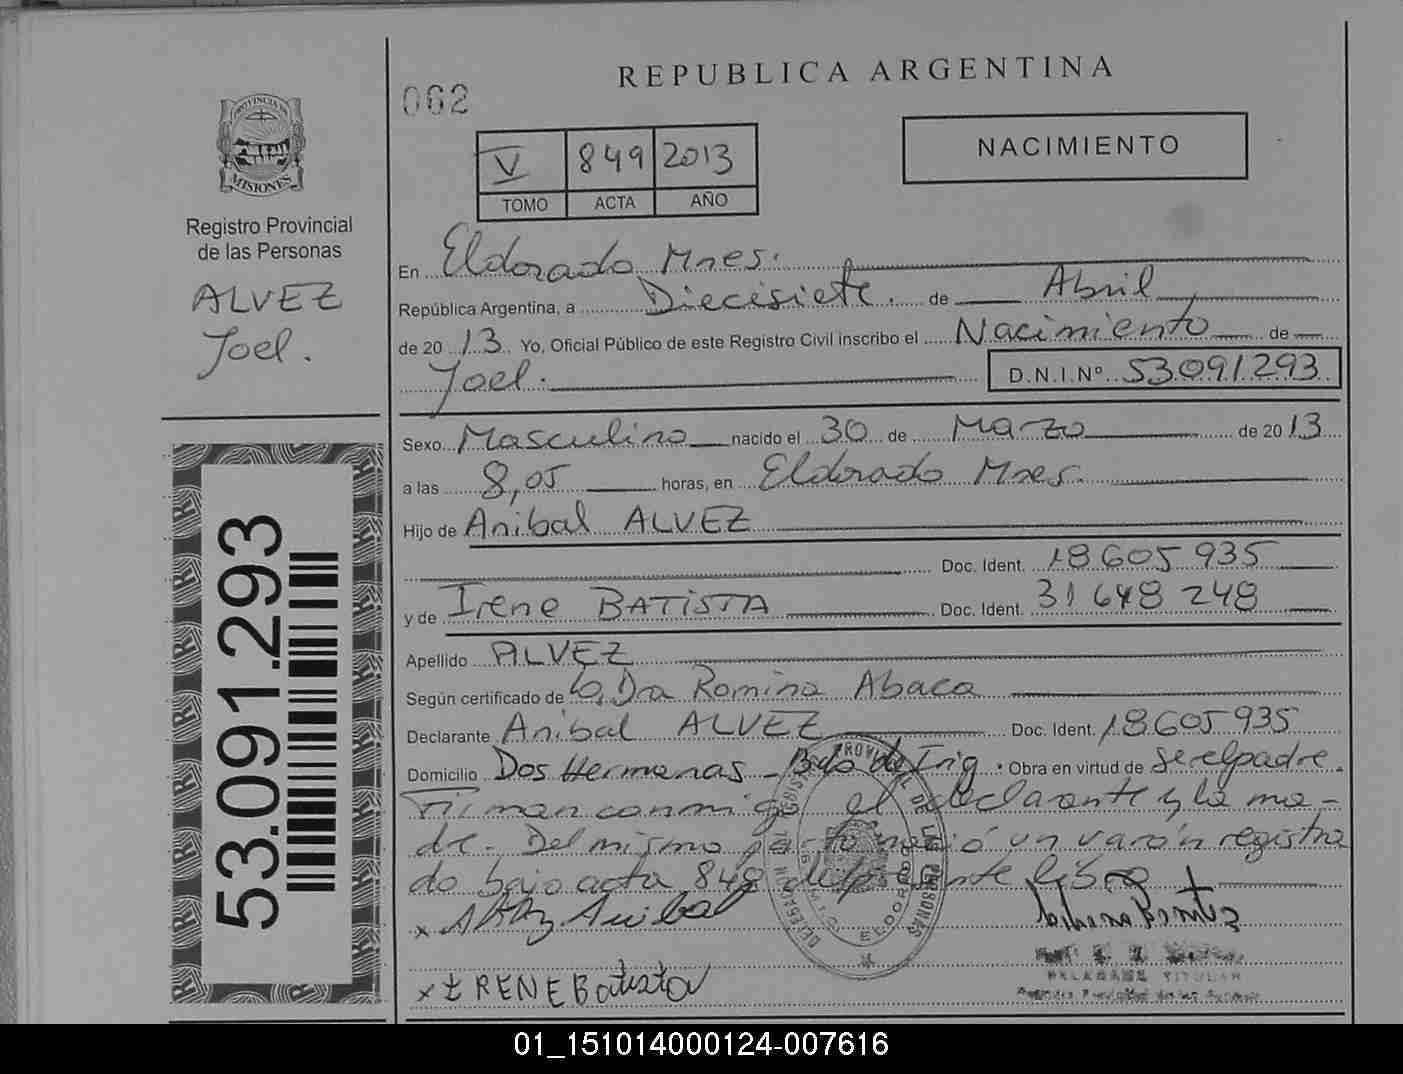 REPUBLICA ARGENTINA
062
NACIMIENTO
V 849 2013
TOMO ACTA AÑO
PROVINCIA DE
MISIONES
Registro Provincial
de las Personas
ALVEZ
Joel.
53.091.293
En Eldorado Mnes.
República Argentina, a Diecisiete. de Abril
de 20 13 Yo, Oficial Público de este Registro Civil inscribo el Nacimiento de
Joel. D.N.I.Nº 53091293
Sexo Masculino nacido el 30 de Marzo de 20 13
a las 8,05 horas, en Eldorado Mnes.
Hijo de Anibal ALVEZ
Doc. Ident. 18605935
y de Irene BATISTA Doc. Ident. 31648248
Apellido ALVEZ
Según certificado de la Dra Romina Abaca
Declarante Anibal ALVEZ Doc. Ident. 18605935
Domicilio Dos Hermanas - Bdo de Irig. Obra en virtud de ser el padre.
Firman conmigo el declarante y la ma-
dre. Del mismo parto nació un varón registra
do bajo acta 848 del presente libro
x Anibal
x IRENE Batista
DELEGADO TITULAR
ELDORADO
01_151014000124-007616